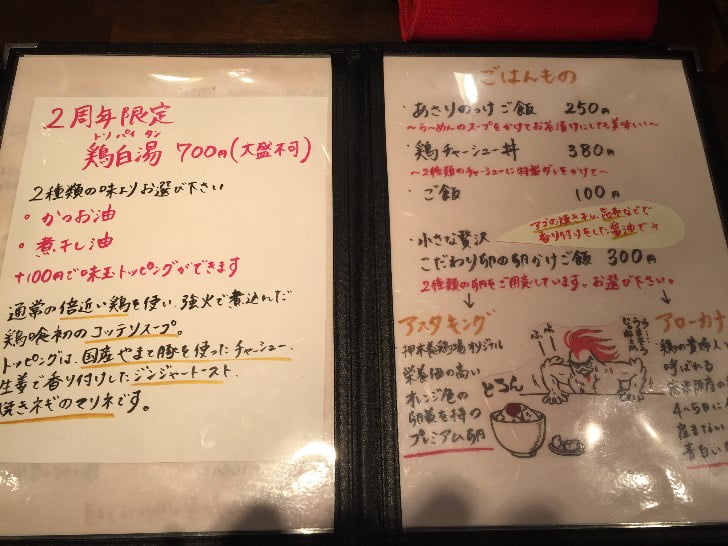 2周年限定
トリパイタン
鶏白湯 700円(大盛不可)
2種類の味よりお選び下さい
。かつお油
。煮干し油
+100円で味玉トッピングができます
通常の倍近い鶏を使い、強火で煮込んだ
鶏喰初のコッテリスープ。
トッピングは、国産やまと豚を使ったチャーシュー、
生姜で香り付けしたジンジャートースト、
焼きネギのマリネです。
ごはんもの
・あさりのっけご飯 250円
〜らーめんのスープをかけてお茶漬けにしても美味しい〜
・鶏チャーシュー丼 380円
〜2種類のチャーシューに特製ダレをかけて〜
・ご飯 100円
アゴの焼き干し、昆布などで
香り付けをした醤油で
・小さな贅沢
こだわり卵の卵かけご飯 300円
2種類の卵をご用意しています。お選び下さい。
アスタキング
押本養鶏場オリジナル
栄養価の高い
オレンジ色の
卵黄を持つ
プレミアム卵
とろん
アローカナ
鶏の貴婦人
呼ばれる
4〜5日に
産まない
青白い